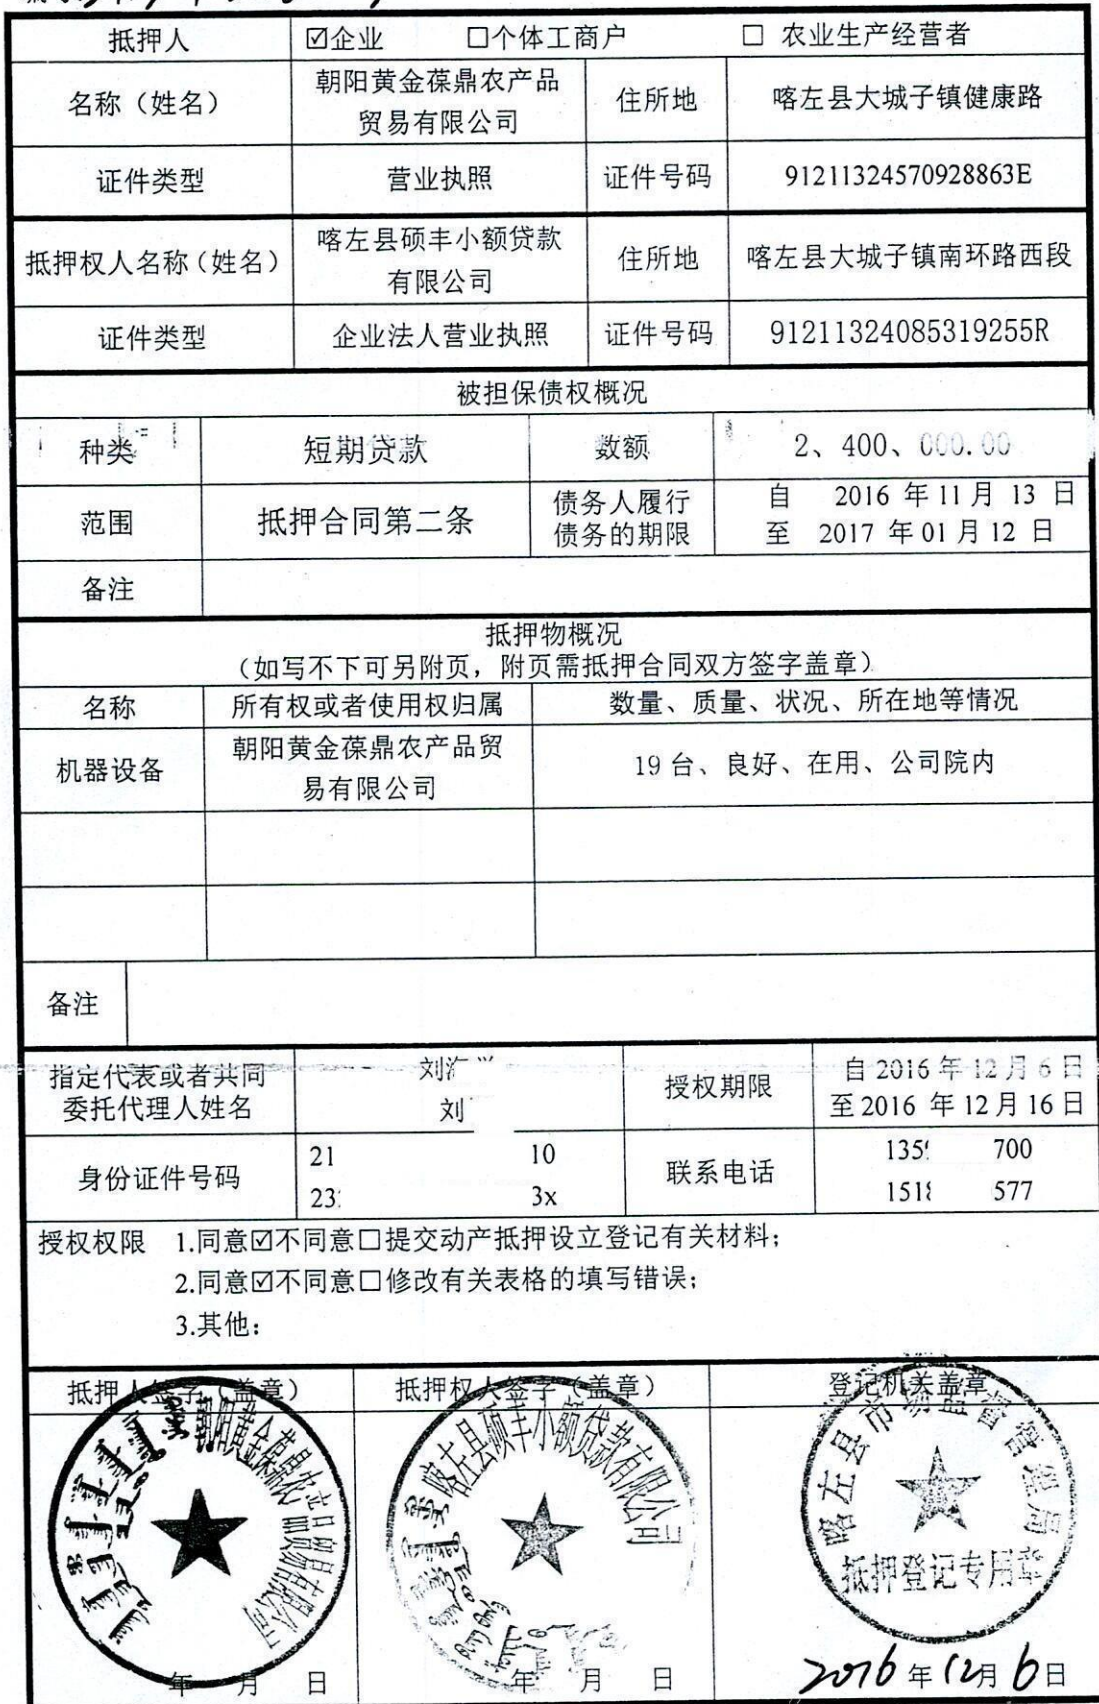 抵押人 ☑企业 □个体工商户 □ 农业生产经营者
名称（姓名） 朝阳黄金葆鼎农产品 贸易有限公司 住所地 喀左县大城子镇健康路
证件类型 营业执照 证件号码 91211324570928863E
抵押权人名称（姓名） 喀左县硕丰小额贷款 有限公司 住所地 喀左县大城子镇南环路西段
证件类型 企业法人营业执照 证件号码 91211324085319255R
被担保债权概况
种类 短期贷款 数额 2、400、000.00
范围 抵押合同第二条 债务人履行 债务的期限 自 2016 年 11 月 13 日
至 2017 年 01 月 12 日
备注
抵押物概况
（如写不下可另附页，附页需抵押合同双方签字盖章）
名称 所有权或者使用权归属 数量、质量、状况、所在地等情况
机器设备 朝阳黄金葆鼎农产品贸 易有限公司 19 台、良好、在用、公司院内
备注
指定代表或者共同 委托代理人姓名 刘 授权期限 自 2016 年 12 月 6 日
刘 至 2016 年 12 月 16 日
身份证件号码 21 10 联系电话 135 700
23 3x 1518 577
授权权限 1.同意☑不同意□提交动产抵押设立登记有关材料；
2.同意☑不同意□修改有关表格的填写错误；
3.其他：
抵押人签字（盖章） 抵押权人签字（盖章） 登记机关盖章
朝阳黄金葆鼎农产品贸易有限公司
喀左县硕丰小额贷款有限公司
喀左县市场监督管理局
抵押登记专用章
年 月 日 年 月 日 2016 年 12 月 6 日